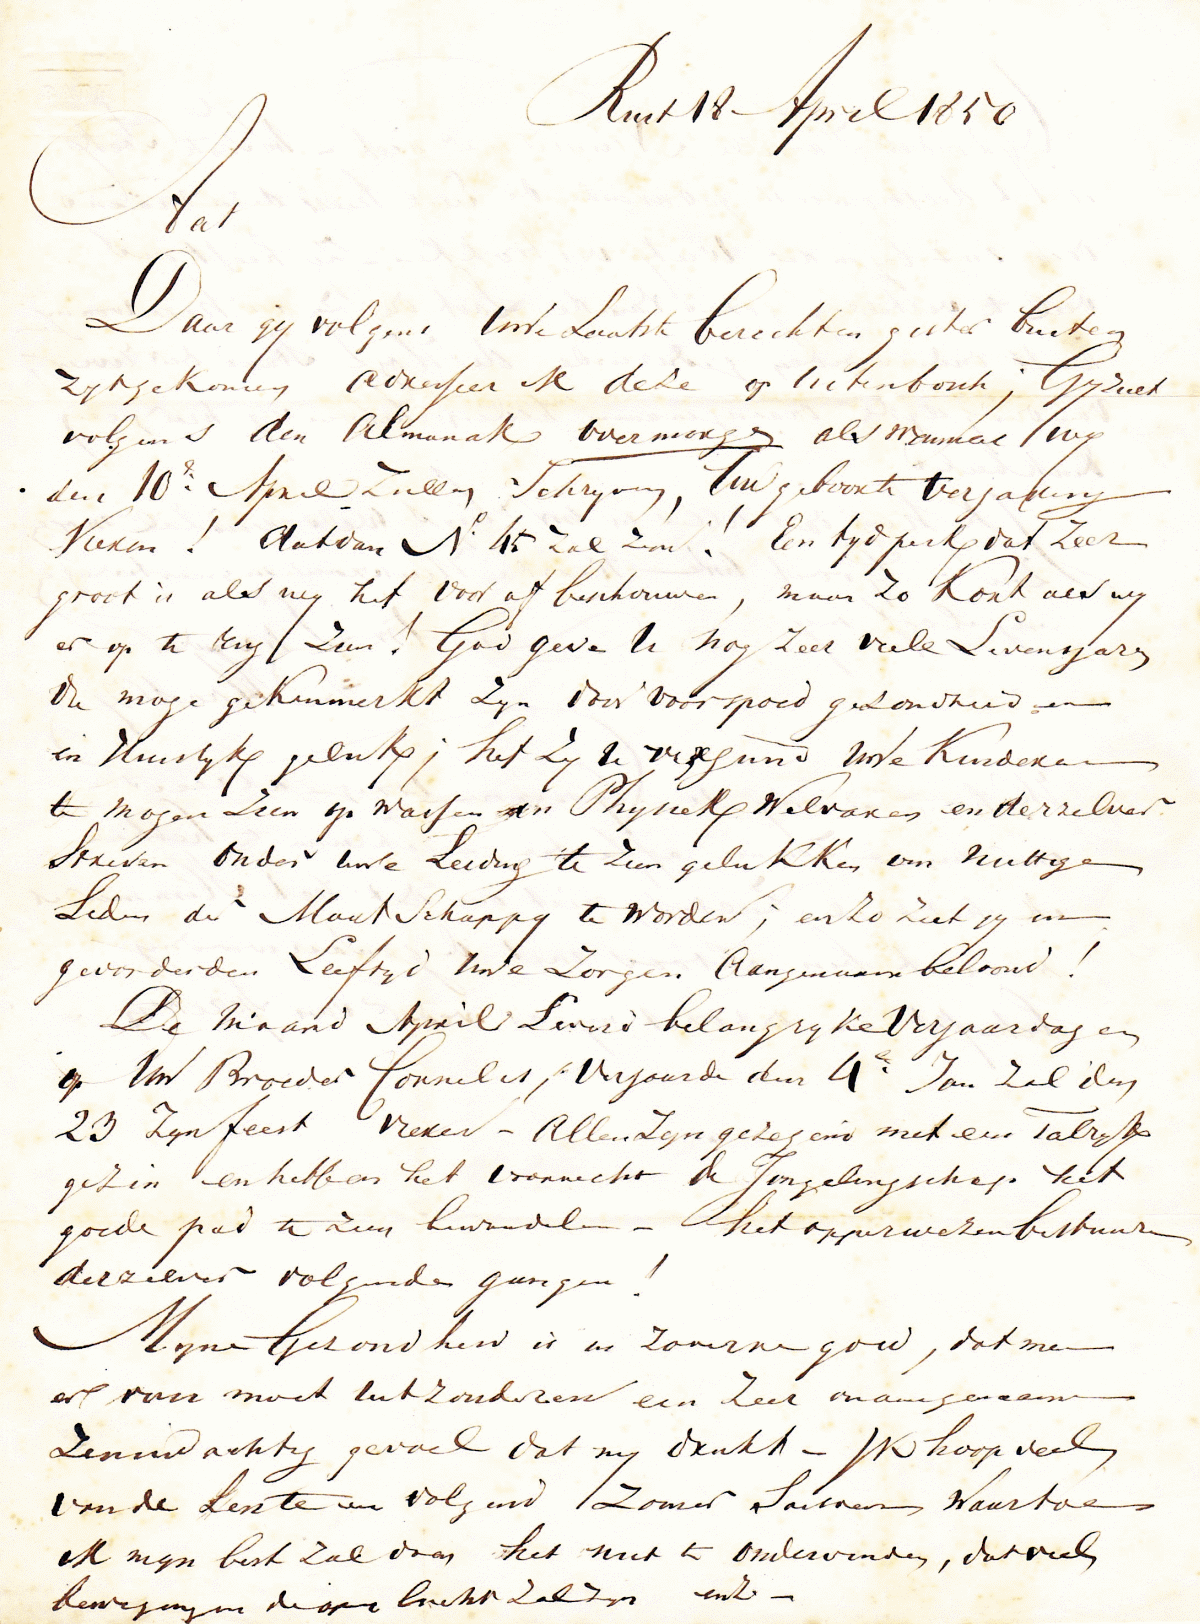 Rust 18 April 1850
Aat
Daar gij volgens Uwe Laatste berechten gister buiten
zijt gekomen adresseer ik deze op ; Gij ziet
volgens den Almanak overmorgen als wanneer wij
den 10e April zullen Schryven, Uw geboorte verjaring
vieren ! dat dan No 45 zal zyn ! Een tydperk dat zeer
groot is als wy het voor af beschouwen, maar zo Kort als wy
er op te rug zien ! God geve U nog zeer veele Levensjaren
die moge gekenmerkt zyn door voorspoed gezondheid en
in Huislyk geluk ; het zy U vergund Uwe Kinderen
te mogen zien op wassen in Physiek Welvaren en derzelver
Streven onder Uwe Leiding te zien gelukken om nuttige
Leden der Maatschappy te worden ; en zo ziet gy in
gevorderden Leeftyd Uwe zorgen Aangenaam beloond !
De Maand April Leverd belangryke Verjaardagen
op Uw Broeder Cornelis, verjaarde den 4e Jan zal den
23 zyn feest vieren - Allen zyn gezegend met een Talryk
gezin en hebben het voorrecht de Jongelingschap het
goede pad te zien bewandelen - het opperwezen bestuure
derzelver volgende gangen !
Myne Gezondheid is in zoverre goed, dat men
er van moet uitzonderen een zeer onaangenaam
Zenuwachtig gevoel dat my drukt - Ik hoop veel
van de Lente en volgend Zomer Saisoen Waartoe
ik myn best zal doen het niet te ondervinden, dat veel
bewegingen de open lucht zal zyn enz -